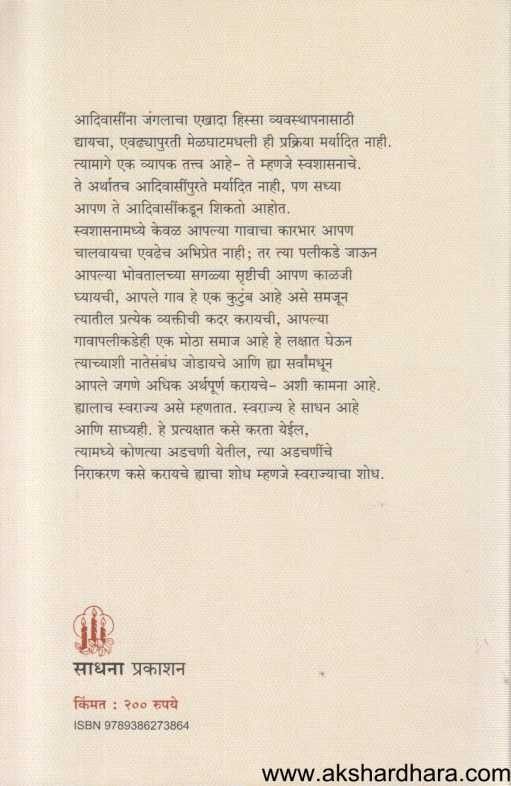 आदिवासींना जंगलाचा एखादा हिस्सा व्यवस्थापनासाठी
द्यायचा, एवढ्यापुरती मेळघाटमधली ही प्रक्रिया मर्यादित नाही.
त्यामागे एक व्यापक तत्त्व आहे- ते म्हणजे स्वशासनाचे.
ते अर्थातच आदिवासींपुरते मर्यादित नाही, पण सध्या
आपण ते आदिवासींकडून शिकतो आहोत.
स्वशासनामध्ये केवळ आपल्या गावाचा कारभार आपण
चालवायचा एवढेच अभिप्रेत नाही; तर त्या पलीकडे जाऊन
आपल्या भोवतालच्या सगळ्या सृष्टीची आपण काळजी
घ्यायची, आपले गाव हे एक कुटुंब आहे असे समजून
त्यातील प्रत्येक व्यक्तीची कदर करायची, आपल्या
गावापलीकडेही एक मोठा समाज आहे हे लक्षात घेऊन
त्याच्याशी नातेसंबंध जोडायचे आणि ह्या सर्वांमधून
आपले जगणे अधिक अर्थपूर्ण करायचे- अशी कामना आहे.
ह्यालाच स्वराज्य असे म्हणतात. स्वराज्य हे साधन आहे
आणि साध्यही. हे प्रत्यक्षात कसे करता येईल,
त्यामध्ये कोणत्या अडचणी येतील, त्या अडचणींचे
निराकरण कसे करायचे ह्याचा शोध म्हणजे स्वराज्याचा शोध.
साधना प्रकाशन
किंमत : २०० रुपये
ISBN 9789386273864
www.akshardhara.com